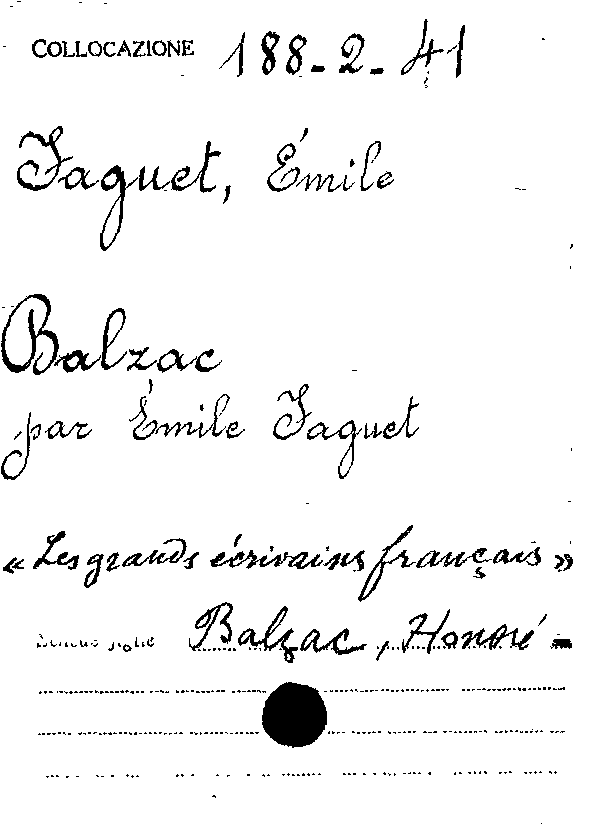 COLLOCAZIONE 188-2-41
Faguet, Émile
Balzac
par Émile Faguet
« Les grands écrivains français »
Balzac, Honoré -